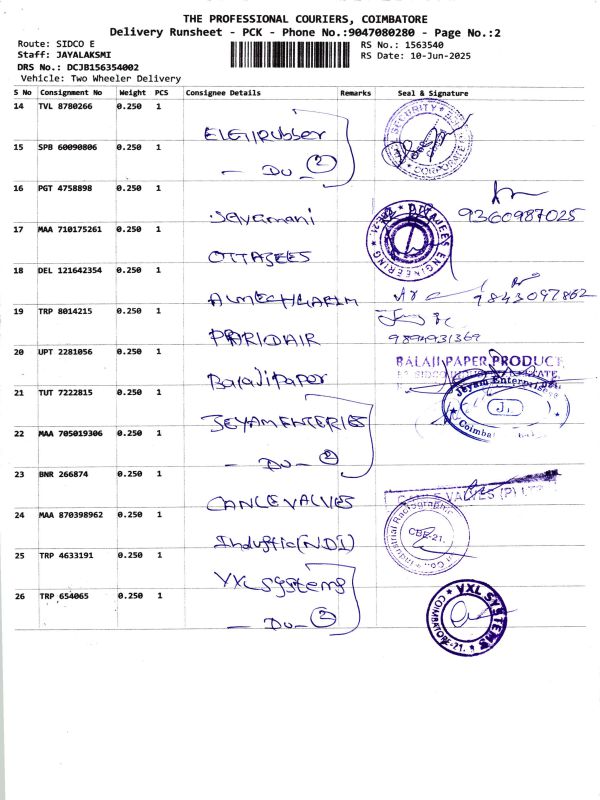 THE PROFESSIONAL COURIERS, COIMBATORE
Delivery Runsheet - PCK - Phone No.:9047080280 - Page No.:2
Route: SIDCO E
RS No.: 1563540
Staff: JAYALAKSMI
RS Date: 10-Jun-2025
DRS No.: DCJB156354002
Vehicle: Two Wheeler Delivery
S No Consignment No Weight PCS Consignee Details Remarks Seal & Signature
14 TVL 8780266 0.250 1 ELGI Rubber
SECURITY
CORPORATE
15 SPB 60090806 0.250 1 - Du - 2
16 PGT 4758898 0.250 1 Jeyamani 9360987025
17 MAA 710175261 0.250 1 OTTAJEES
OTTAJEES ENGINEERING
18 DEL 121642354 0.250 1 7843097862
19 TRP 8014215 0.250 1 PARIDAIR
9894931369
20 UPT 2281056 0.250 1 Balaji Paper
BALAJI PAPER PRODUCT
21 TUT 7222815 0.250 1 JEYAM ENTERIES
Jeyam Enterprises
22 MAA 705019306 0.250 1 - Du - 2
23 BNR 266874 0.250 1 CANLE VALVES
VALVES (P) LTD
24 MAA 870398962 0.250 1 (NDI)
Industrial Radiographic
CBE-21.
25 TRP 4633191 0.250 1 VXL Systems
26 TRP 654065 0.250 1 - Du - 2
VXL SYSTEMS
COIMBATORE-21.